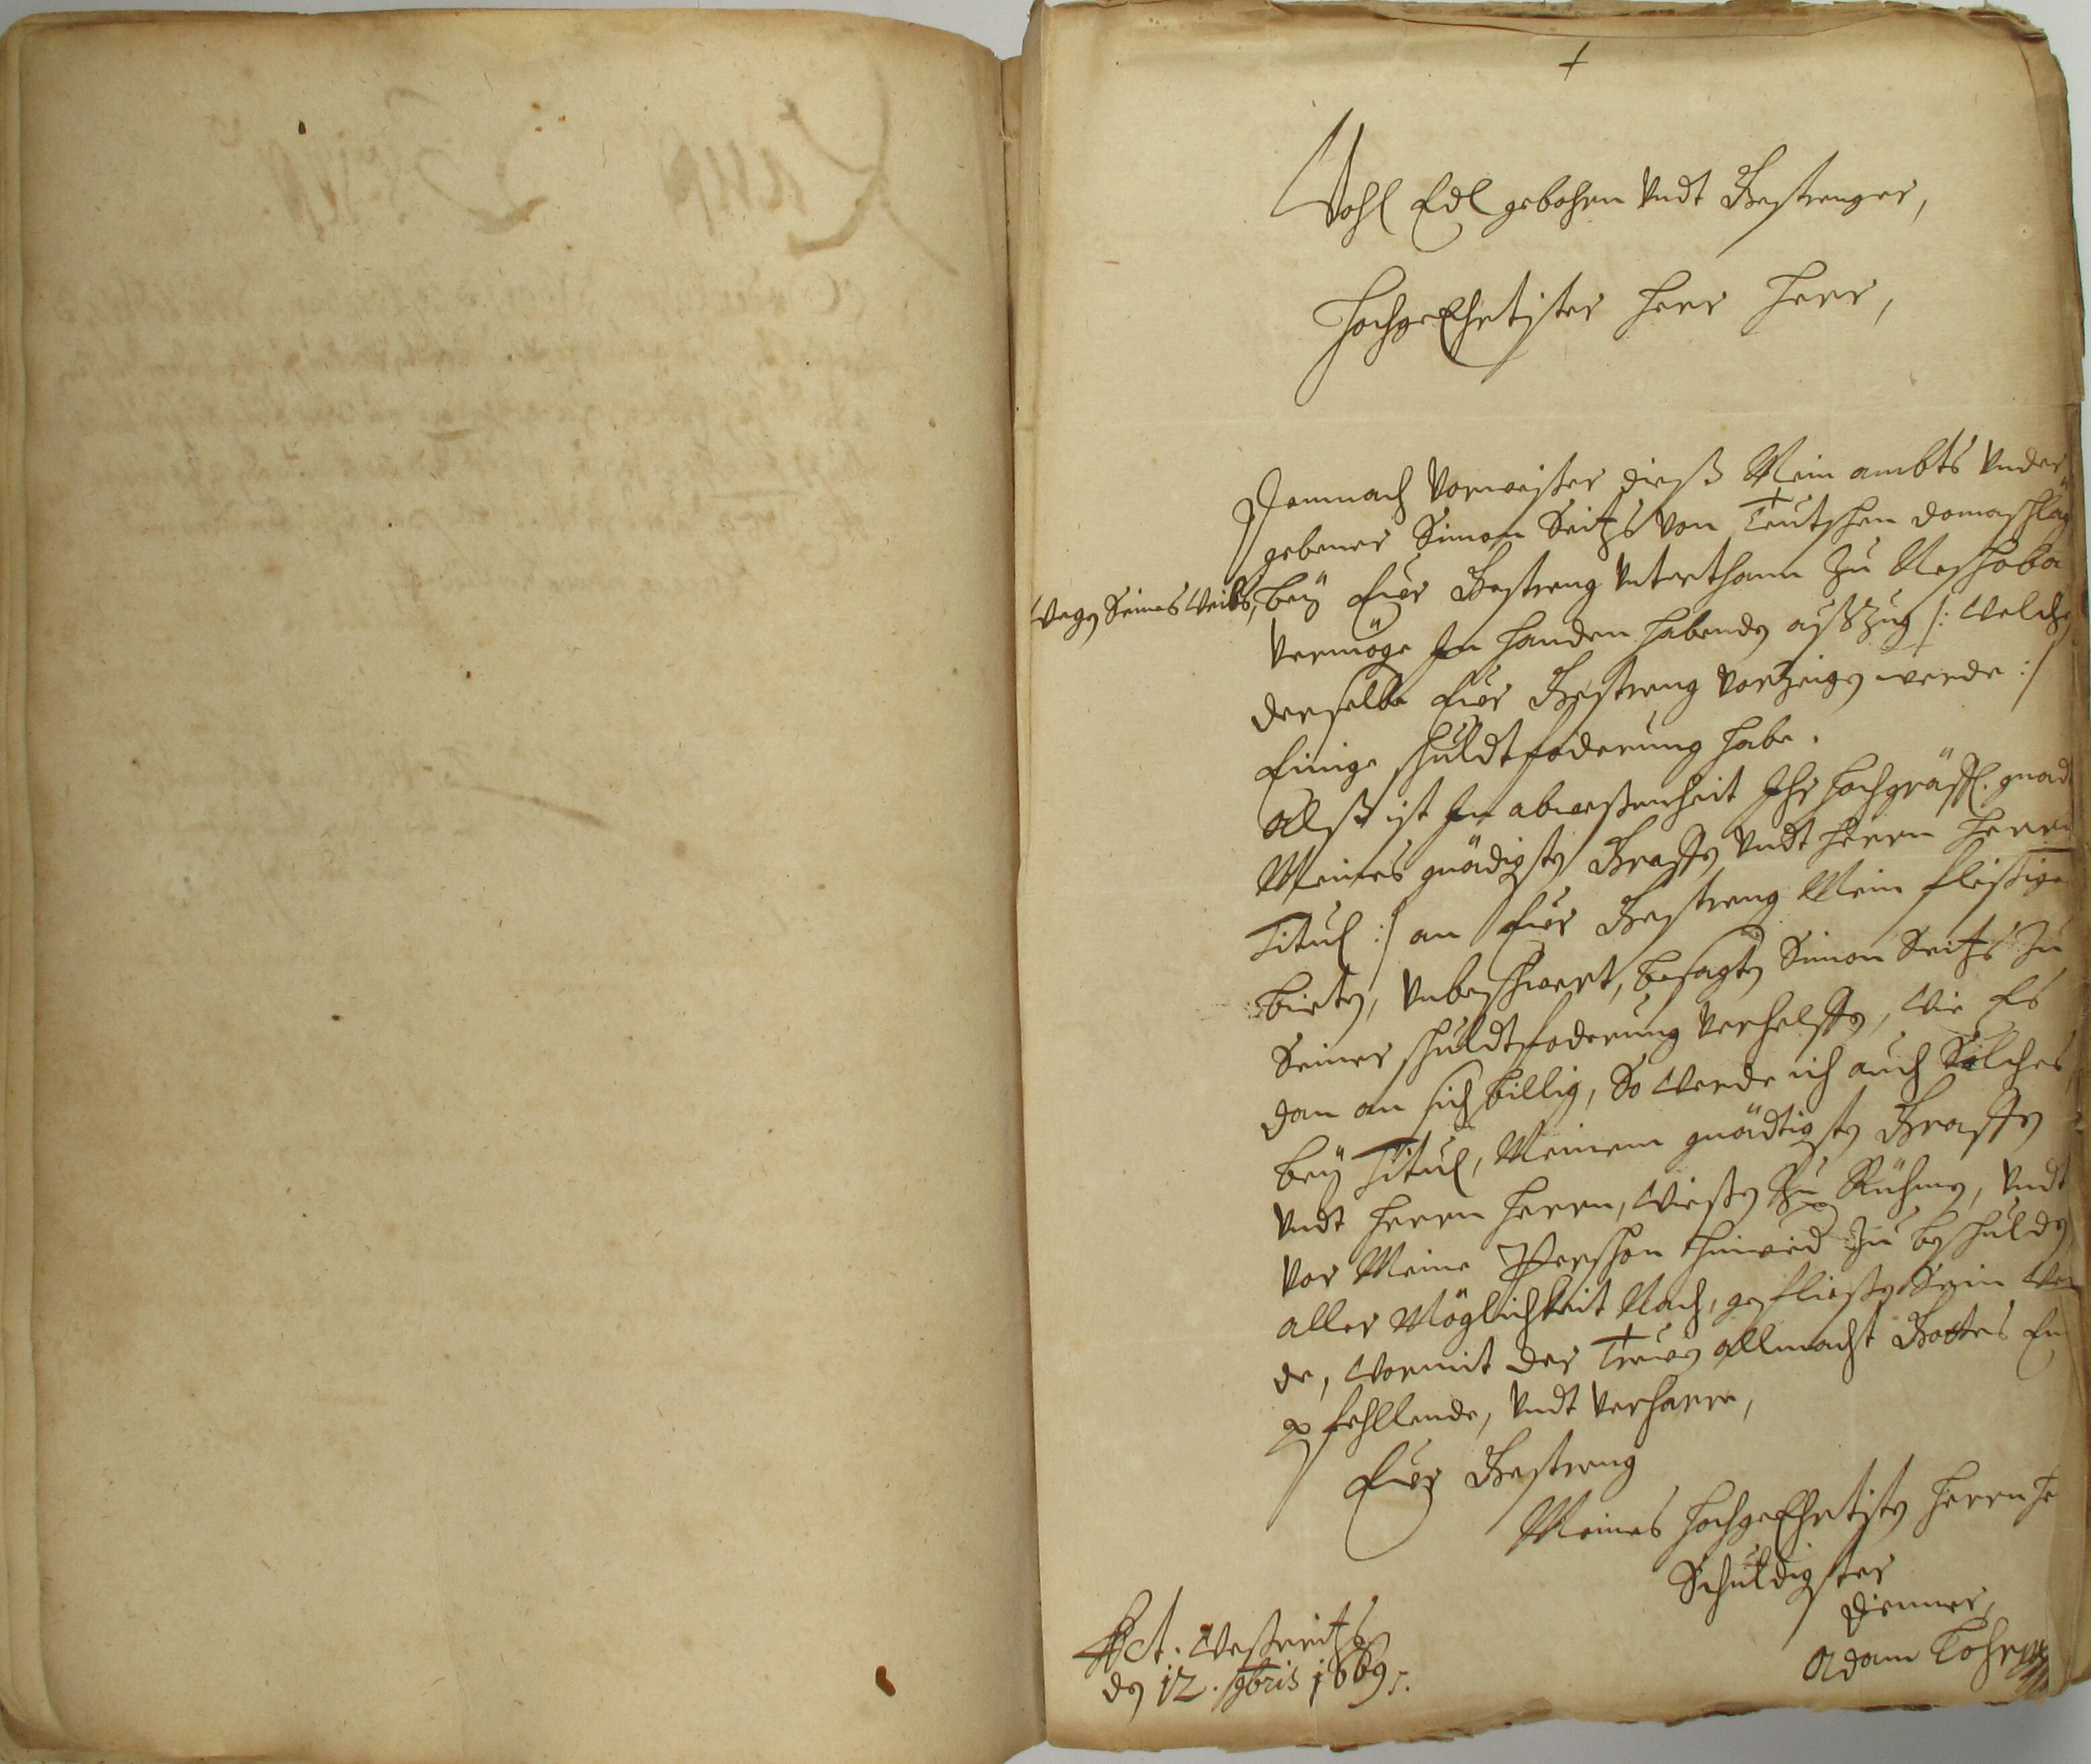 +
Wohl Edl gebohrn Undt Gestrenger,
HochgeEhrtister Herr Herr,
Demnach Vorweister dieß Mein ambts Under
gebener Simon Seitzs von Teutschen domaschlag
Wegen Seines Weibs, beÿ Euer Gestreng Unterthann Zu
Vermöge In handen habenden außZug /: Welchen
derselbe Euer Gestreng Vorzeigen werde :/
Einige schuldtfoderung habe.
Alß ist In abweßenheit Ihr hochgräffl. gnad
Meines gnädigsten Graffen Undt Herrn Herrn
Titul :/ an Euer Gestreng Mein fleißiges
bieten, Unbeschwert, besagten Simon Seitzs Zu
Seiner schuldtfoderung Verhelffen, Wie Es
dan an sich billig, So Werde ich auch Solches
beÿ Titul, Meinem gnädtigsten Graffen
Undt Herrn Herrn, Wießen Zu Rühmen, Undt
Vor Meine Pershon hinwid Zu beschulden
aller Möglichkeit Nach, gefließen Sein Wer
de, Wormit der Treuen allmacht Gottes Em
pfehllende, Undt Verharre,
Euer Gestreng
Meines HochgeEhrtisten Herrn He
Schuldigster
Diener,
Adam
Act. Weßeritz
den 12. 9bris 1669.